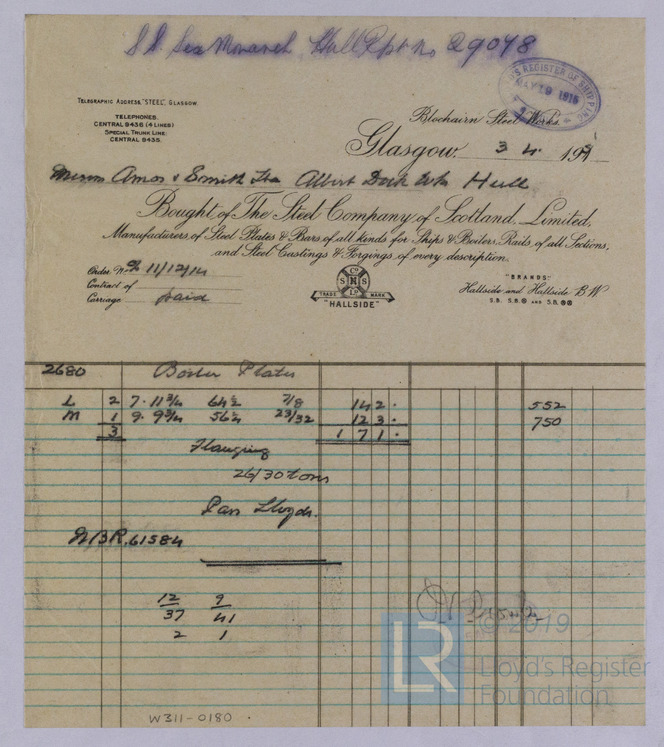 S.S. Sea Monarch Hull Rpt No 29048
'S REGISTER OF SHIPPING
MAY 19 1915
TELEGRAPHIC ADDRESS "STEEL", GLASGOW.
TELEPHONES.
CENTRAL 9436 (4 LINES)
SPECIAL TRUNK LINE:
CENTRAL 9435.
Blochairn Steel Works.
Glasgow, 3 4. 191
Messrs Amos & Smith Ltd Albert Dock Wks Hull
Bought of The Steel Company of Scotland, Limited,
Manufacturers of Steel Plates & Bars of all kinds for Ships & Boilers, Rails of all Sections,
and Steel Castings & Forgings of every description.
Order No 11/12/14
Contract of
Carriage paid
S Co S M S LD
TRADE MARK
"HALLSIDE"
"BRANDS"
Hallside and Hallside B.W
S.B. S.B. AND S.B.
2680 Boiler Plates
L 2 7. 11 3/4 64 1/2 7/8 14 2 . 552
M 1 9. 9 3/4 56 1/2 23/32 12 3 . 750
3 1 7 1 .
Flanging
26/30 tons
Pass Lloyds.
61584
12 9
37 41
2 1
© 2019
LR
Lloyd's Register
Foundation
W311-0180